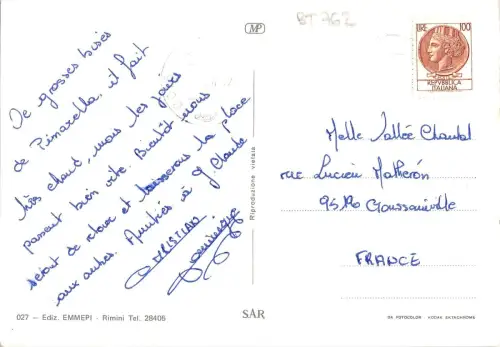 MP
BT 762
LIRE 100
REPVBBLICA
ITALIANA
De grosses bises
de Pinarella. il fait
très chaud, mais les jours
passent bien vite. Bientôt nous
seront de retour et laisserons la place
aux autres. Amitiés à J. Claude
CHRISTIAN
Dominique
Melle Vallée Chantal
rue Lucien Matheron
95190 Goussainville
FRANCE
Riproduzione vietata
027 – Ediz. EMMEPI - Rimini Tel. 28405
SAR
DA FOTOCOLOR KODAK EKTACHROME